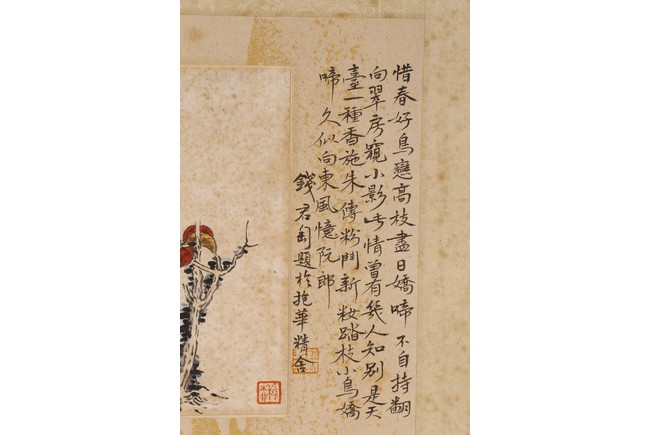 惜春好鳥戀高枝盡日嬌啼 不自持翻
向翠房窺小影此情曾有幾人知別是天
臺一種香施朱傅粉鬥新妝踏枝小鳥嬌
啼 久似向東風憶阮郎
錢君匋題於抱華精舍